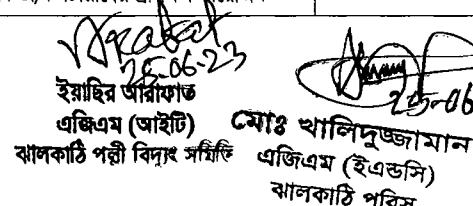 Arafat
25-06-23
ইয়াছির আরাফাত
এজিএম (আইটি)
ঝালকাঠি পল্লী বিদ্যুৎ সমিতি
25-06
মোঃ খালিদুজ্জামান
এজিএম (ইএন্ডসি)
ঝালকাঠি পবিস